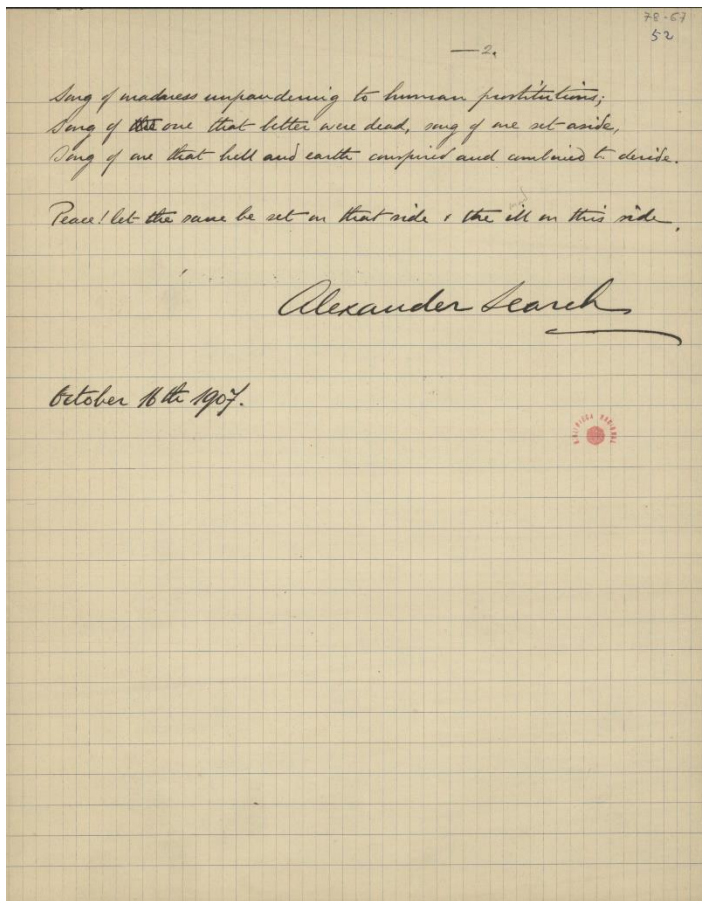 78-67
52
— 2.
Song of madness unpandering to human prostitutions;
Song of the one that better were dead, song of one set aside,
Song of one that hell and earth conspired and combined to deride.
Peace! let the sane be set on that side & the ill on this side.
Alexander Search
October 16th 1907.